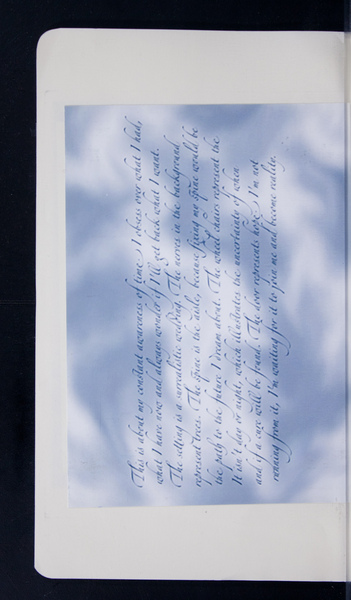 This is about my constant awareness of time. I obsess over what I had,
what I have now and always wonder if I'll get back what I want.
The setting is a surrealistic wedding. The nerves in the background
represent trees. The spine is the aisle, because fixing my spine would be
the path to the future I dream about. The wheel chairs represent the
It isn't day or night, which illustrates the uncertainty of when
and if a cure will be found. The dove represents hope. I'm not
running from it, I'm waiting for it to join me and become reality.